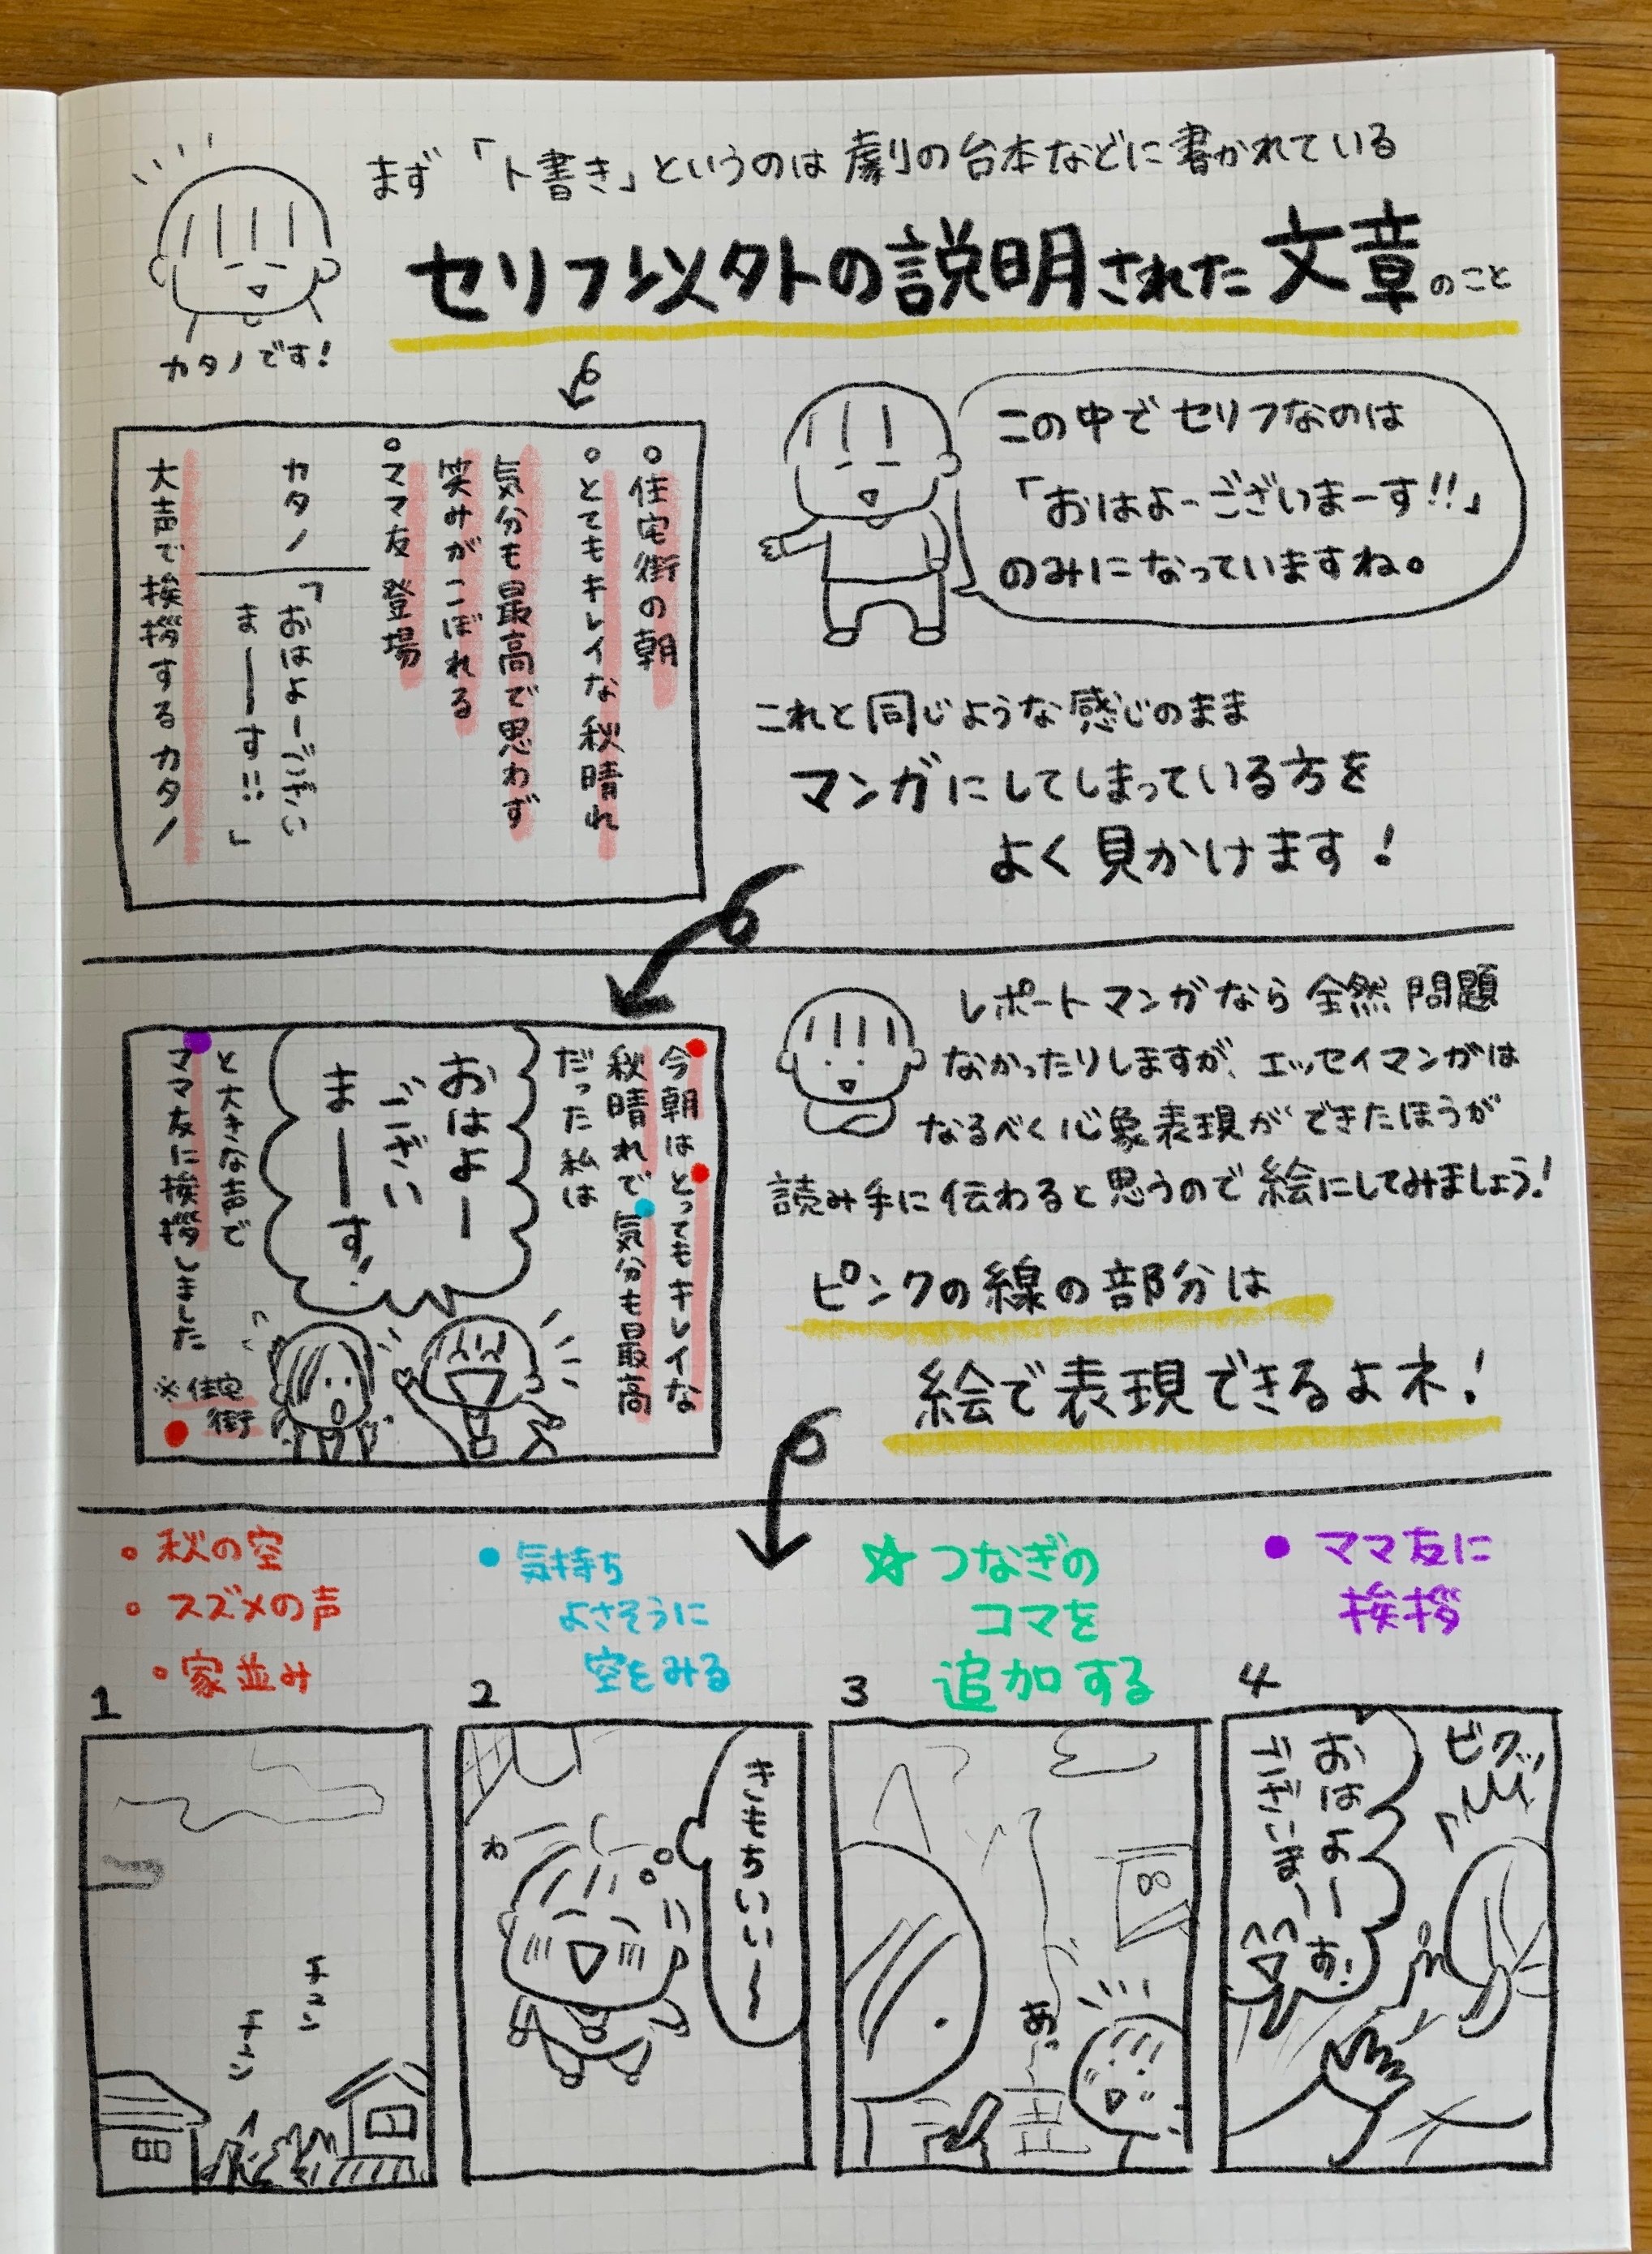 まず「ト書き」というのは劇の台本などに書かれている
セリフ以外の説明された文章のこと
カタノです!
。住宅街の朝
。とてもキレイな秋晴れ
気分も最高で思わず
笑みがこぼれる
。ママ友登場
カタノ
「おはよーござい
まーーす!!」
大声で挨拶するカタノ
この中でセリフなのは
「おはよーございまーす!!」
のみになっていますね。
これと同じような感じのまま
マンガにしてしまっている方を
よく見かけます!
今朝はとってもキレイな
秋晴れで気分も最高
だった私は
おはよー
ござい
まーーす!
と大きな声で
ママ友に挨拶しました
※住宅
街
レポートマンガなら全然問題
なかったりしますが、エッセイマンガは
なるべく心象表現ができたほうが
読み手に伝わると思うので絵にしてみましょう!
ピンクの線の部分は
絵で表現できるよネ!
。秋の空
。スズメの声
。家並み
1
チュン
チュン
●気持ち
よさそうに
空をみる
2
きもちいいー〜
カ
☆つなぎの
コマを
追加する
3
あっ
●ママ友に
挨拶
4
ビクッ
おはよーー
ございまーー
す!